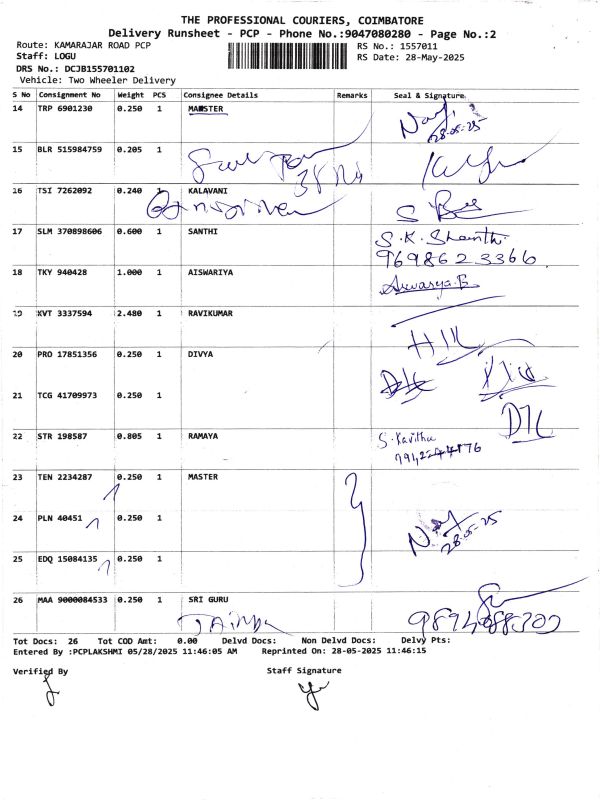 THE PROFESSIONAL COURIERS, COIMBATORE
Delivery Runsheet - PCP - Phone No.:9047080280 - Page No.:2
Route: KAMARAJAR ROAD PCP
RS No.: 1557011
Staff: LOGU
RS Date: 28-May-2025
DRS No.: DCJB155701102
Vehicle: Two Wheeler Delivery
S No Consignment No Weight PCS Consignee Details Remarks Seal & Signature
14 TRP 6901230 0.250 1 MASTER
28-05-25
15 BLR 515984759 0.205 1
16 TSI 7262092 0.240 1 KALAVANI
17 SLM 370898606 0.600 1 SANTHI S.K. Shanthi
9698623366
18 TKY 940428 1.000 1 AISWARIYA Aiswarya.B
19 KVT 3337594 2.480 1 RAVIKUMAR
20 PRO 17851356 0.250 1 DIVYA
21 TCG 41709973 0.250 1
22 STR 198587 0.805 1 RAMAYA S. Kavitha
23 TEN 2234287 0.250 1 MASTER
24 PLN 40451 0.250 1
28-05-25
25 EDQ 15084135 0.250 1
26 MAA 9000084533 0.250 1 SRI GURU
Tot Docs: 26 Tot COD Amt: 0.00 Delvd Docs: Non Delvd Docs: Delvy Pts:
Entered By :PCPLAKSHMI 05/28/2025 11:46:05 AM Reprinted On: 28-05-2025 11:46:15
Verified By Staff Signature